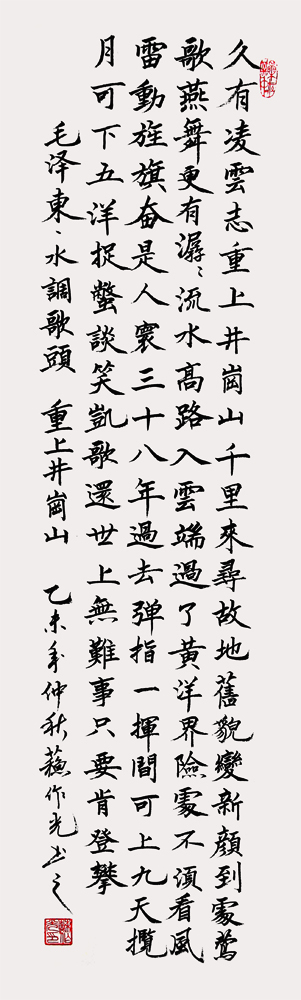 久有凌雲志重上井崗山千里來尋故地舊貌變新顏到處鶯
歌燕舞更有潺〻流水高路入雲端過了黃洋界險處不須看風
雷動旌旗奋是人寰三十八年過去弹指一揮間可上九天攬
月可下五洋捉鱉談笑凱歌還世上無難事只要肯登攀
毛泽東、水調歌頭 重上井崗山 乙未年仲秋蘇作光书之